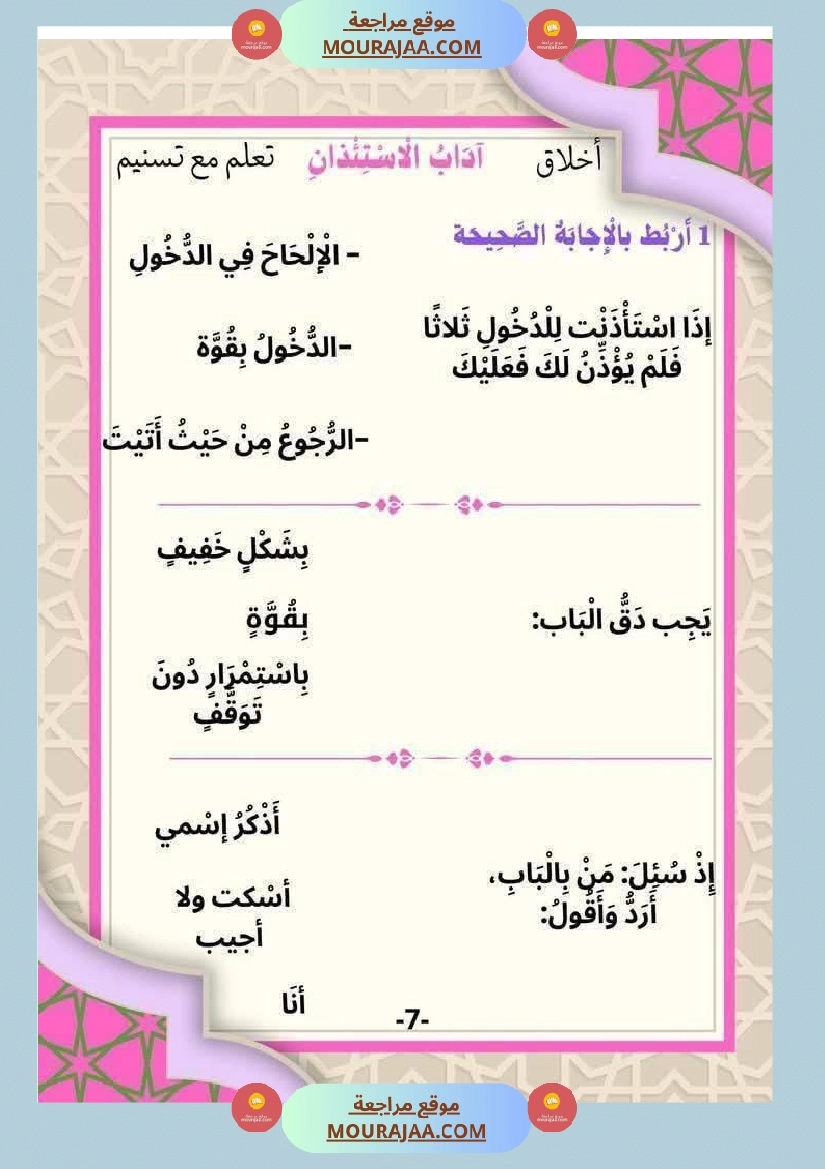 موقع مراجعة
MOURAJAA.COM
أخلاق آدَابُ الْاسْتِئْذانِ تعلم مع تسنيم
1 أَرْبُط بالْإِجابَةُ الصَّحِيحة
- الْإلْحَاحَ فِي الدُّخُولِ
إذَا اسْتَأْذَنْت لِلْدُخُولِ ثَلاثًا
فَلَمْ يُؤْذِّنُ لَكَ فَعَلَيْكَ
-الدُّخُولُ بِقُوَّة
-الرُّجُوعُ مِنْ حَيْثُ أَتَيْتَ
بِشَكْلٍ خَفِيفٍ
يَجِب دَقُّ الْبَاب:
بِقُوَّةٍ
بِاسْتِمْرَارٍ دُونَ
تَوَقُّفٍ
أَذْكُرُ إسْمي
إِذْ سُئِلَ: مَنْ بِالْبَابِ،
أَرَدُّ وَأَقُولُ:
أسْكت ولا
أجيب
أنَا
-7-
موقع مراجعة
MOURAJAA.COM